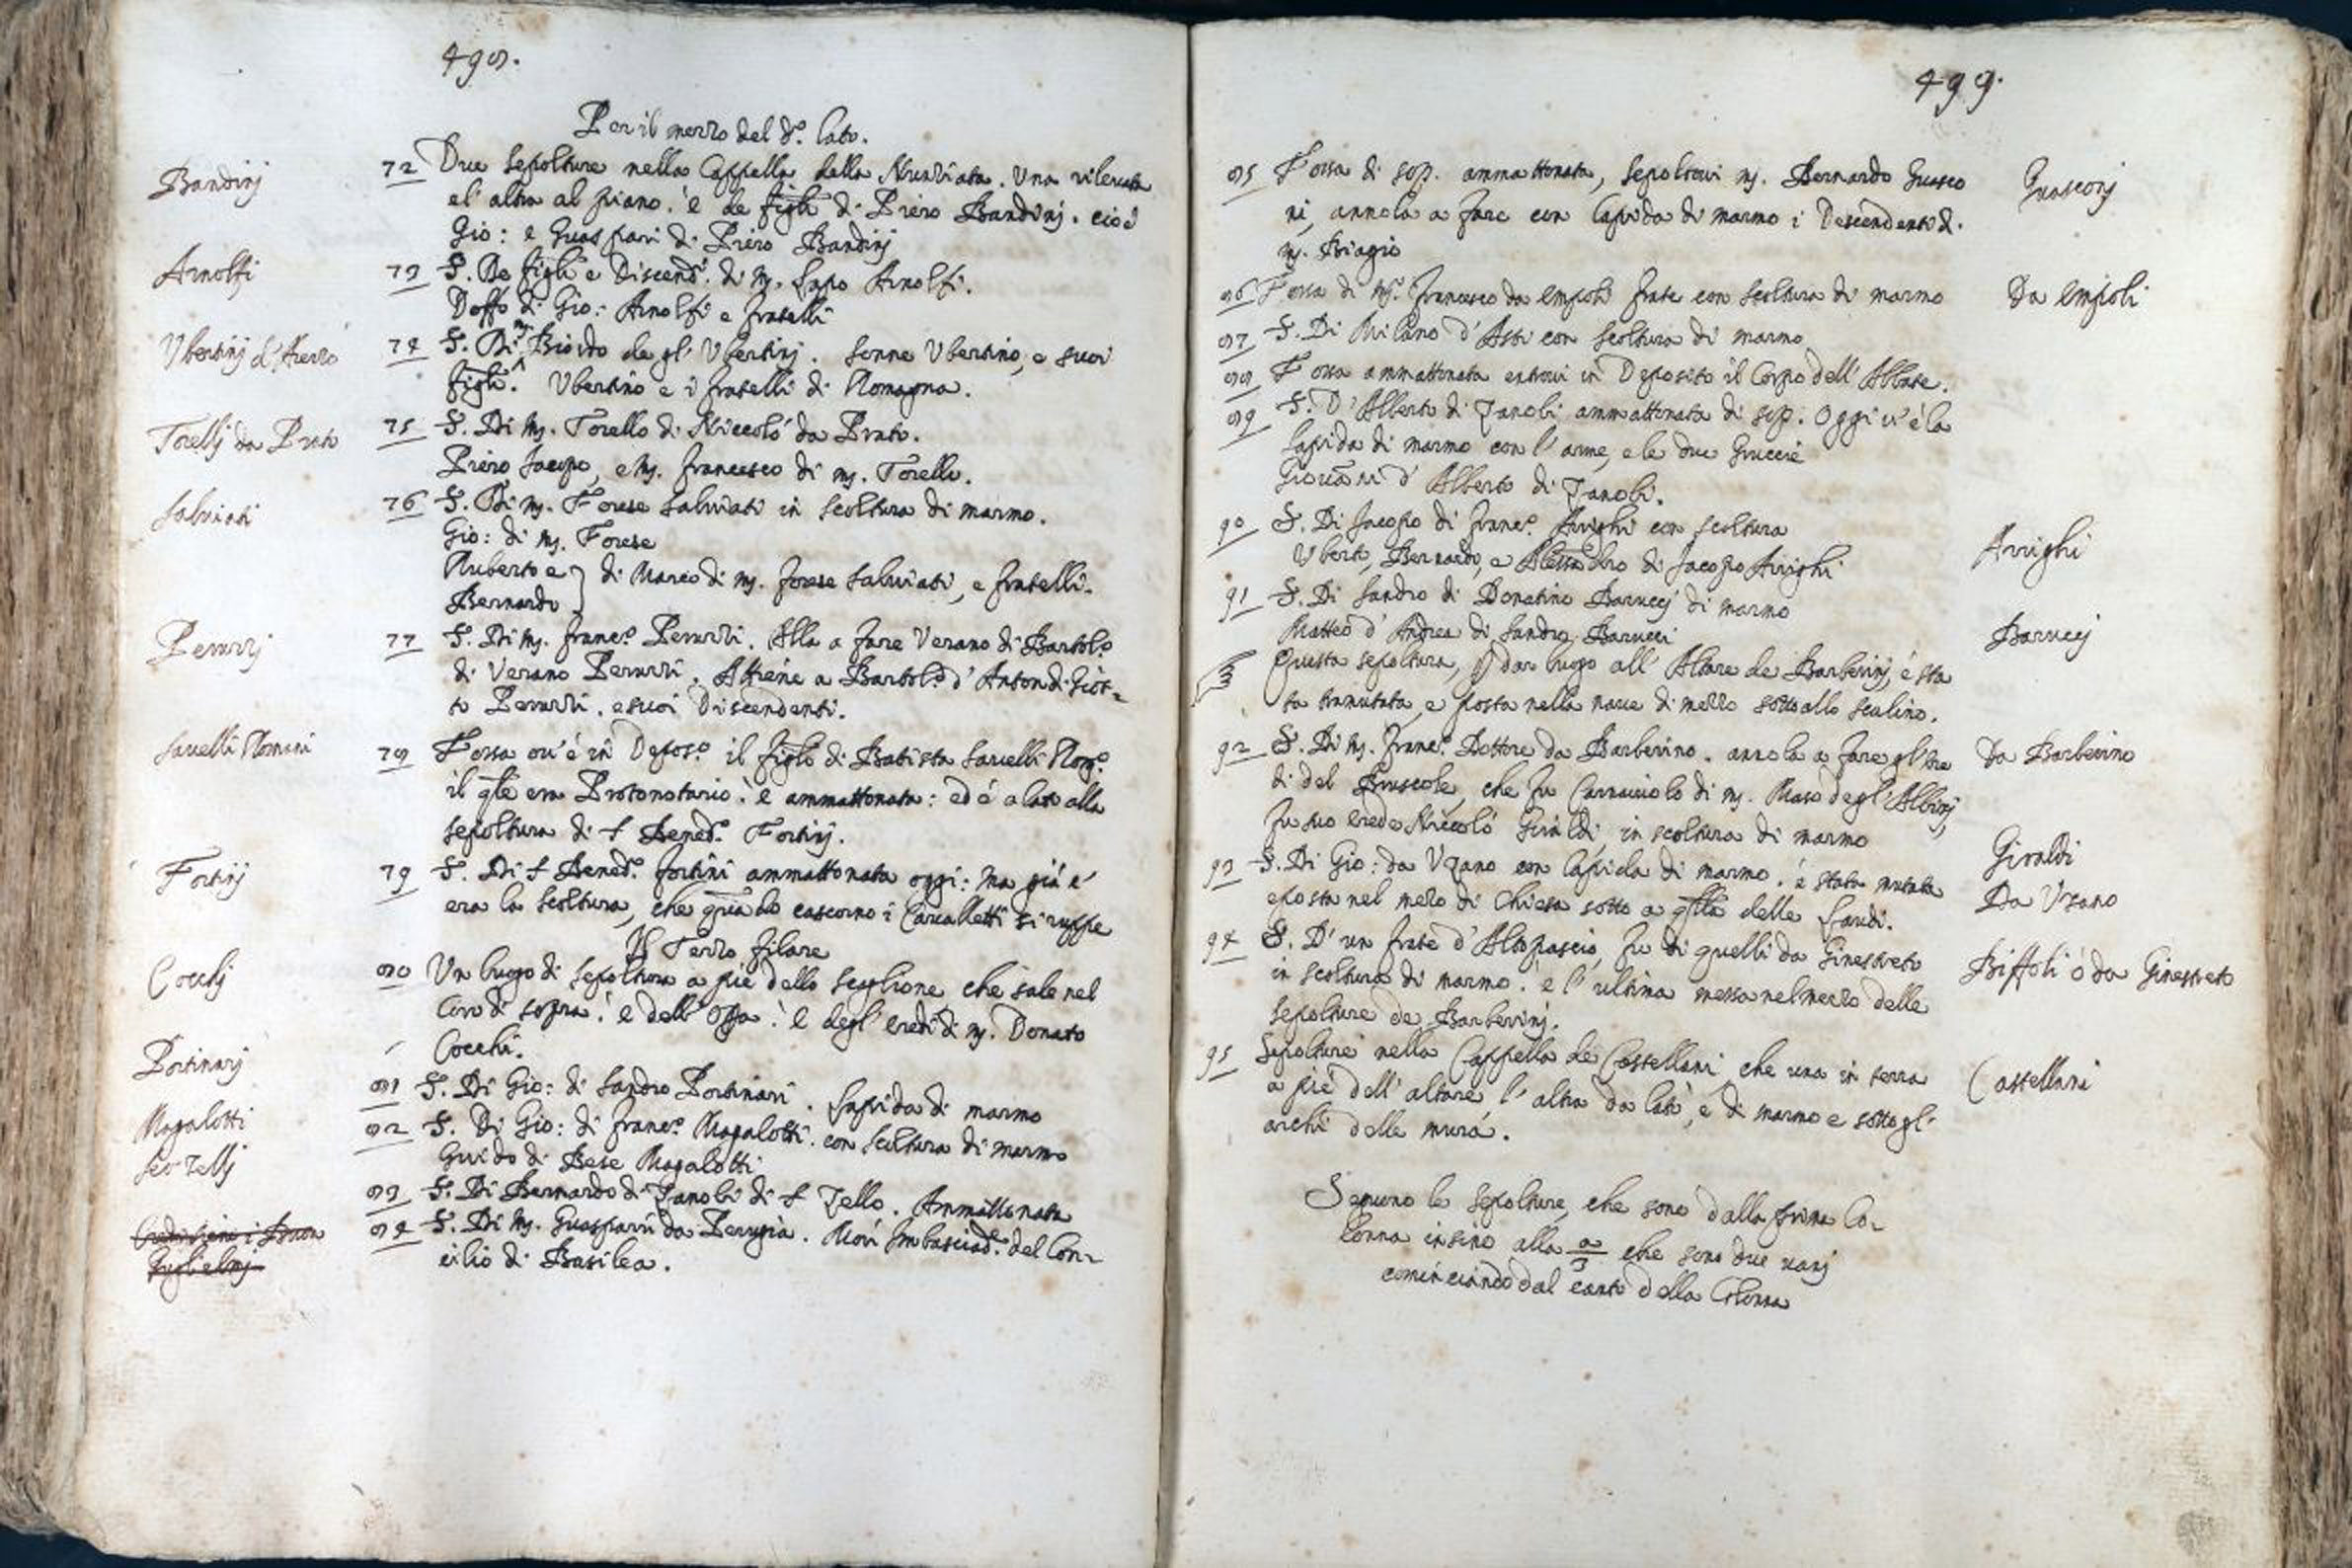 498.
Per il mezzo del d.º lato.
Bandinj
72 Due sepolture nella Cappella della Nunziata. Una rilevata
e l'altra al piano. è de figli di Piero Bandinj. cioè
Gio: e Guaspari di Piero Bandinj
Arnolfi
73 S. De figli e Discend.ti di M. Lapo Arnolfi.
Doffo di Gio: Arnolfi e fratelli
Ubertinj d'Arezzo
74 S. Di m. Biordo de gl' Ubertinj. Sonne Ubertino, e suoi
figli. Ubertino e i fratelli di Romagna.
Torellj da Prato
75 S. Di M. Torello di Niccolò da Prato.
Piero Jacopo, e M. Francesco di M. Torello.
Salviati
76 S. Di M. Forese Salviati in scoltura di marmo.
Gio: di M. Forese
Ruberto e } di Marco di M. Forese Salviati, e fratelli.
Bernardo
Peruzzj
77 S. Di M. Franc.º Peruzzi. Alla a fare Verano di Bartol.º
di Verano Peruzzi. Attiene a Bartol.º d'Anton di Giot=
to Peruzzi. e suoi Discendenti.
Savelli Romani
78 Fossa ov'è in Depos.º il figlo di Batista Savelli Rom.º
il qle era Protonotario. è ammattonata: ed è a lato alla
sepoltura di S Bened.º Fortinj.
Fortinj
79 S. Di S Bened.º Fortini ammattonata oggi: Ma già v'
era la scoltura, che quado cascorno i Cavalletti si ruppe
Il Terzo filare
Cocchj
80 Un luogo di sepoltura a piè dello scaglione che sale nel
Coro di sopra. è dell' Opa. è degl' eredi di M. Donato
Cocchi.
Portinarj
81 S. Di Gio: di Sandro Portinari. Lapida di marmo
Magalotti
82 S. Di Gio: di Franc.º Magalotti. con scoltura di marmo
Guido di Bese Magalotti
Ser Zellj
83 S. Di Bernardo di Zanobi di S Zello. Ammattonata
84 S. Di M. Guasparri da Perugia. Morì Imbasciad.e del Con=
cilio di Basilea.
499.
85 Fossa di sop. ammattonata, sepoltovi M. Bernardo Guasco
ni, annola a fare con lapida di marmo i Descendenti d.
M. Biagio
Guasconj
86 Fossa di M.º Francesco da Empoli frate con scoltura di marmo
Da Empoli
87 S. Di Milano d'Asti con scoltura di marmo
88 Fossa ammattonata entrovi in Deposito il Corpo dell' Abbate.
89 S. D'Alberto di Zanobi ammattonata di sop. Oggi v'è la
lapida di marmo con l'arme, e le due Gruccie
Giovani d'Alberto di Zanobi.
90 S. Di Jacopo di Franc.º Arrighi con scoltura
Uberto, Bernardo, e Alessadro di Jacopo Arrighi
Arrighi
91 S. Di Sandro di Donatino Baruccj di marmo
Matteo d'Andrea di Sandro Barucci
Baruccj
Questa sepoltura, p dar luogo all' Altare de Barberinj, è sta
ta tramutata, e posta nella nave di mezzo sotto allo scalino.
92 S. Di M. Franc.º Dottore da Barberino. annola a fare gl'ere
di del Bruscolo, che fu Carnaiuolo di M. Maso degl' Albizj,
fu suo erede Niccolò Giraldi, in scoltura di marmo
Da Barberino
Giraldi
93 S. Di Gio: da Uzano con lapida di marmo. è stata mutata
e posta nel mezo di Chiesa sotto a qlla delle Laudi.
Da Uzano
94 S. D'un frate d'Altopascio, fu di quelli da Ginestreto
in scoltura di marmo. è l'ultima messa nel mezzo delle
sepolture de Barberinj.
Biffoli ò da Ginestreto
95 Sepolture nella Cappella de Castellani che una in terra
a piè dell' altare l'altra da lato, è di marmo e sotto gl'
archi delle mura.
Castellani
Seguno le sepolture, che sono dalla prima Co=
lonna insino alla che sono due vani
cominciando dal canto della Colonna